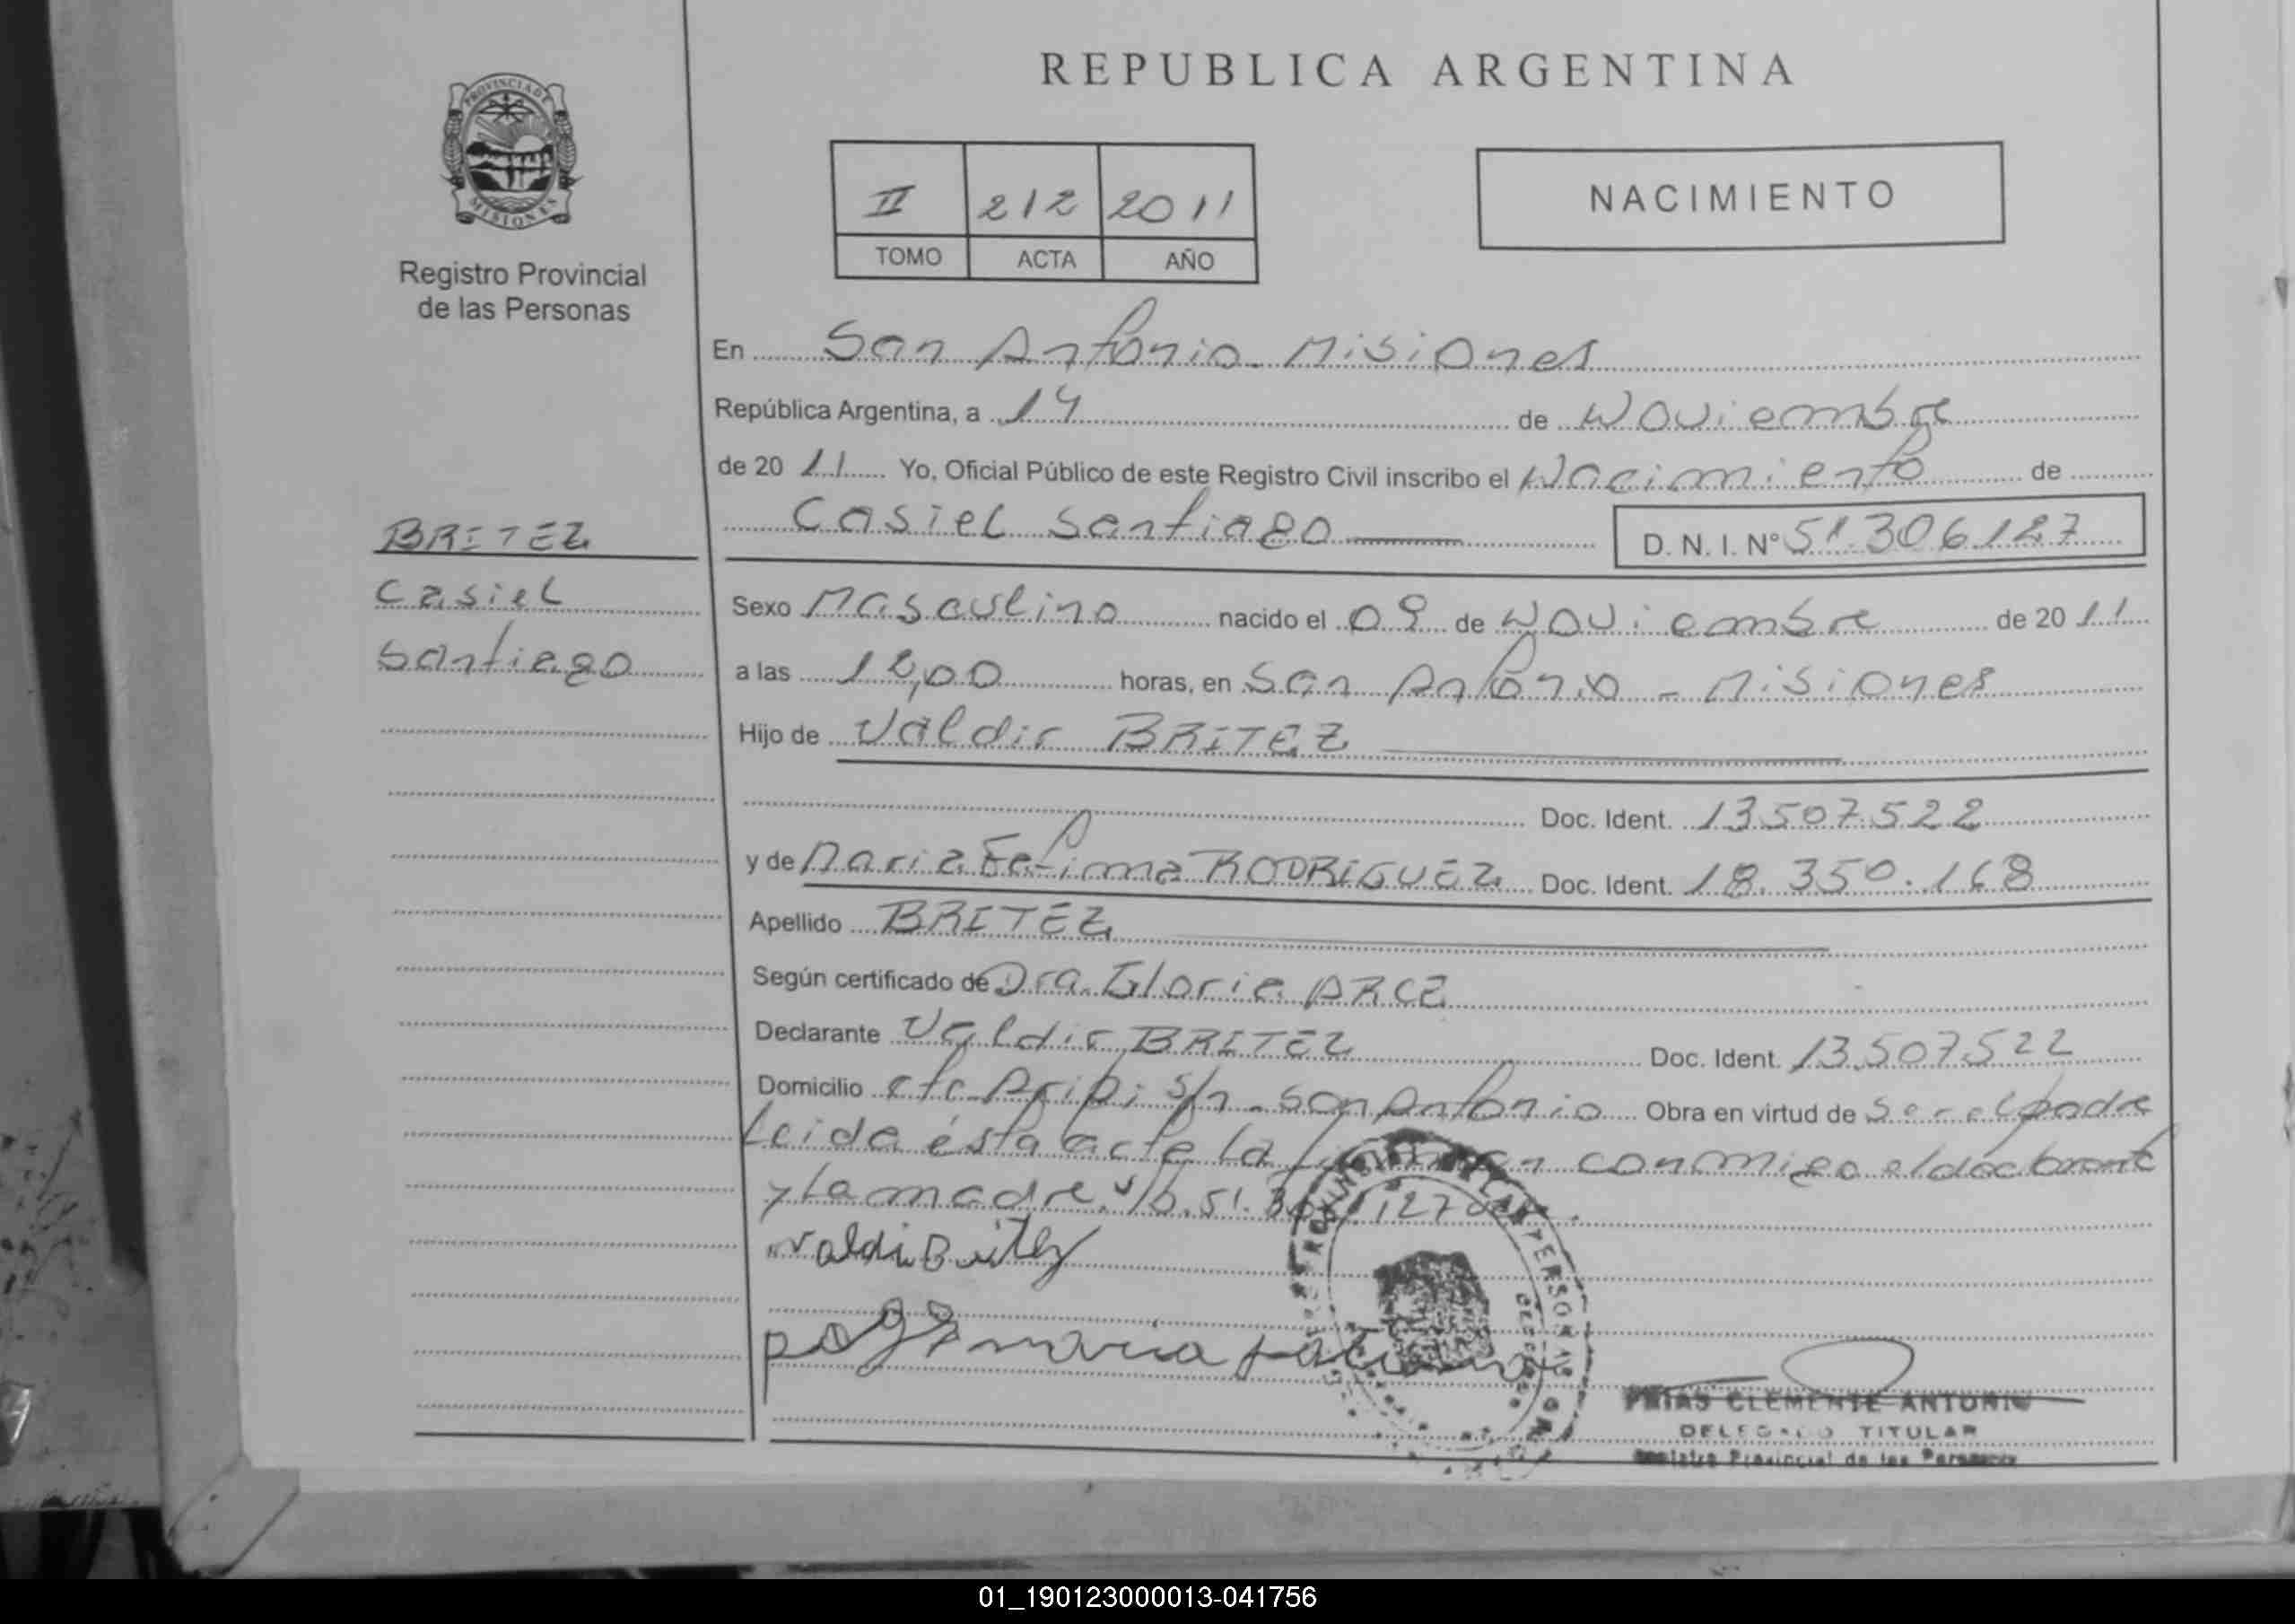 REPUBLICA ARGENTINA
PROVINCIA DE
MISIONES
Registro Provincial
de las Personas
II 212 2011
TOMO ACTA AÑO
NACIMIENTO
En San Antonio - Misiones
República Argentina, a 14 de Noviembre
de 20 11 Yo, Oficial Público de este Registro Civil inscribo el Nacimiento de
Casiel Santiago D. N. I. Nº 51.306.127
BRITEZ
Casiel
Santiago
Sexo Masculino nacido el 09 de Noviembre de 20 11
a las horas, en San Antonio - Misiones
Hijo de Valdir BRITEZ
Doc. Ident. 13507522
y de Maria Fatima RODRIGUEZ Doc. Ident. 18.350.168
Apellido BRITEZ
Según certificado de Dra. Gloria ARCE
Declarante Valdir BRITEZ Doc. Ident. 13.507.522
Domicilio s/n - San Antonio Obra en virtud de Ser el padre
Leida ésta acta la firman conmigo el declarante
y la madre. 51.306.127
Valdir Britez
maria fatima
FRIAS CLEMENTE ANTONIO
DELEGADO TITULAR
Registro Provincial de las Personas
01_190123000013-041756